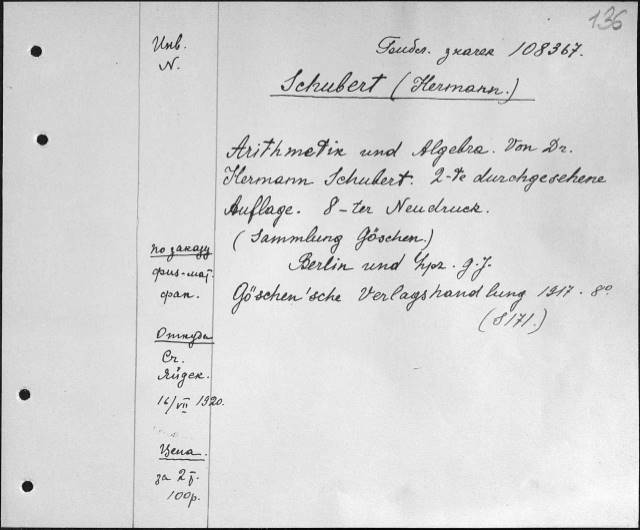 136
Инв.
N.
108367.
Schubert (Hermann.)
Arithmetik und Algebra. Von Dr.
Hermann Schubert. 2-te durchgesehene
Auflage. 8-ter Neudruck.
(Sammlung Göschen.)
Berlin und Lpz. g. J.
Göschen'sche Verlagshandlung 1917. 8°
(S 171.)
по заказу
физ-мат.
фак.
Откуда
Ст.
16/VII 1920.
Цена.
за 2 т.
100р.